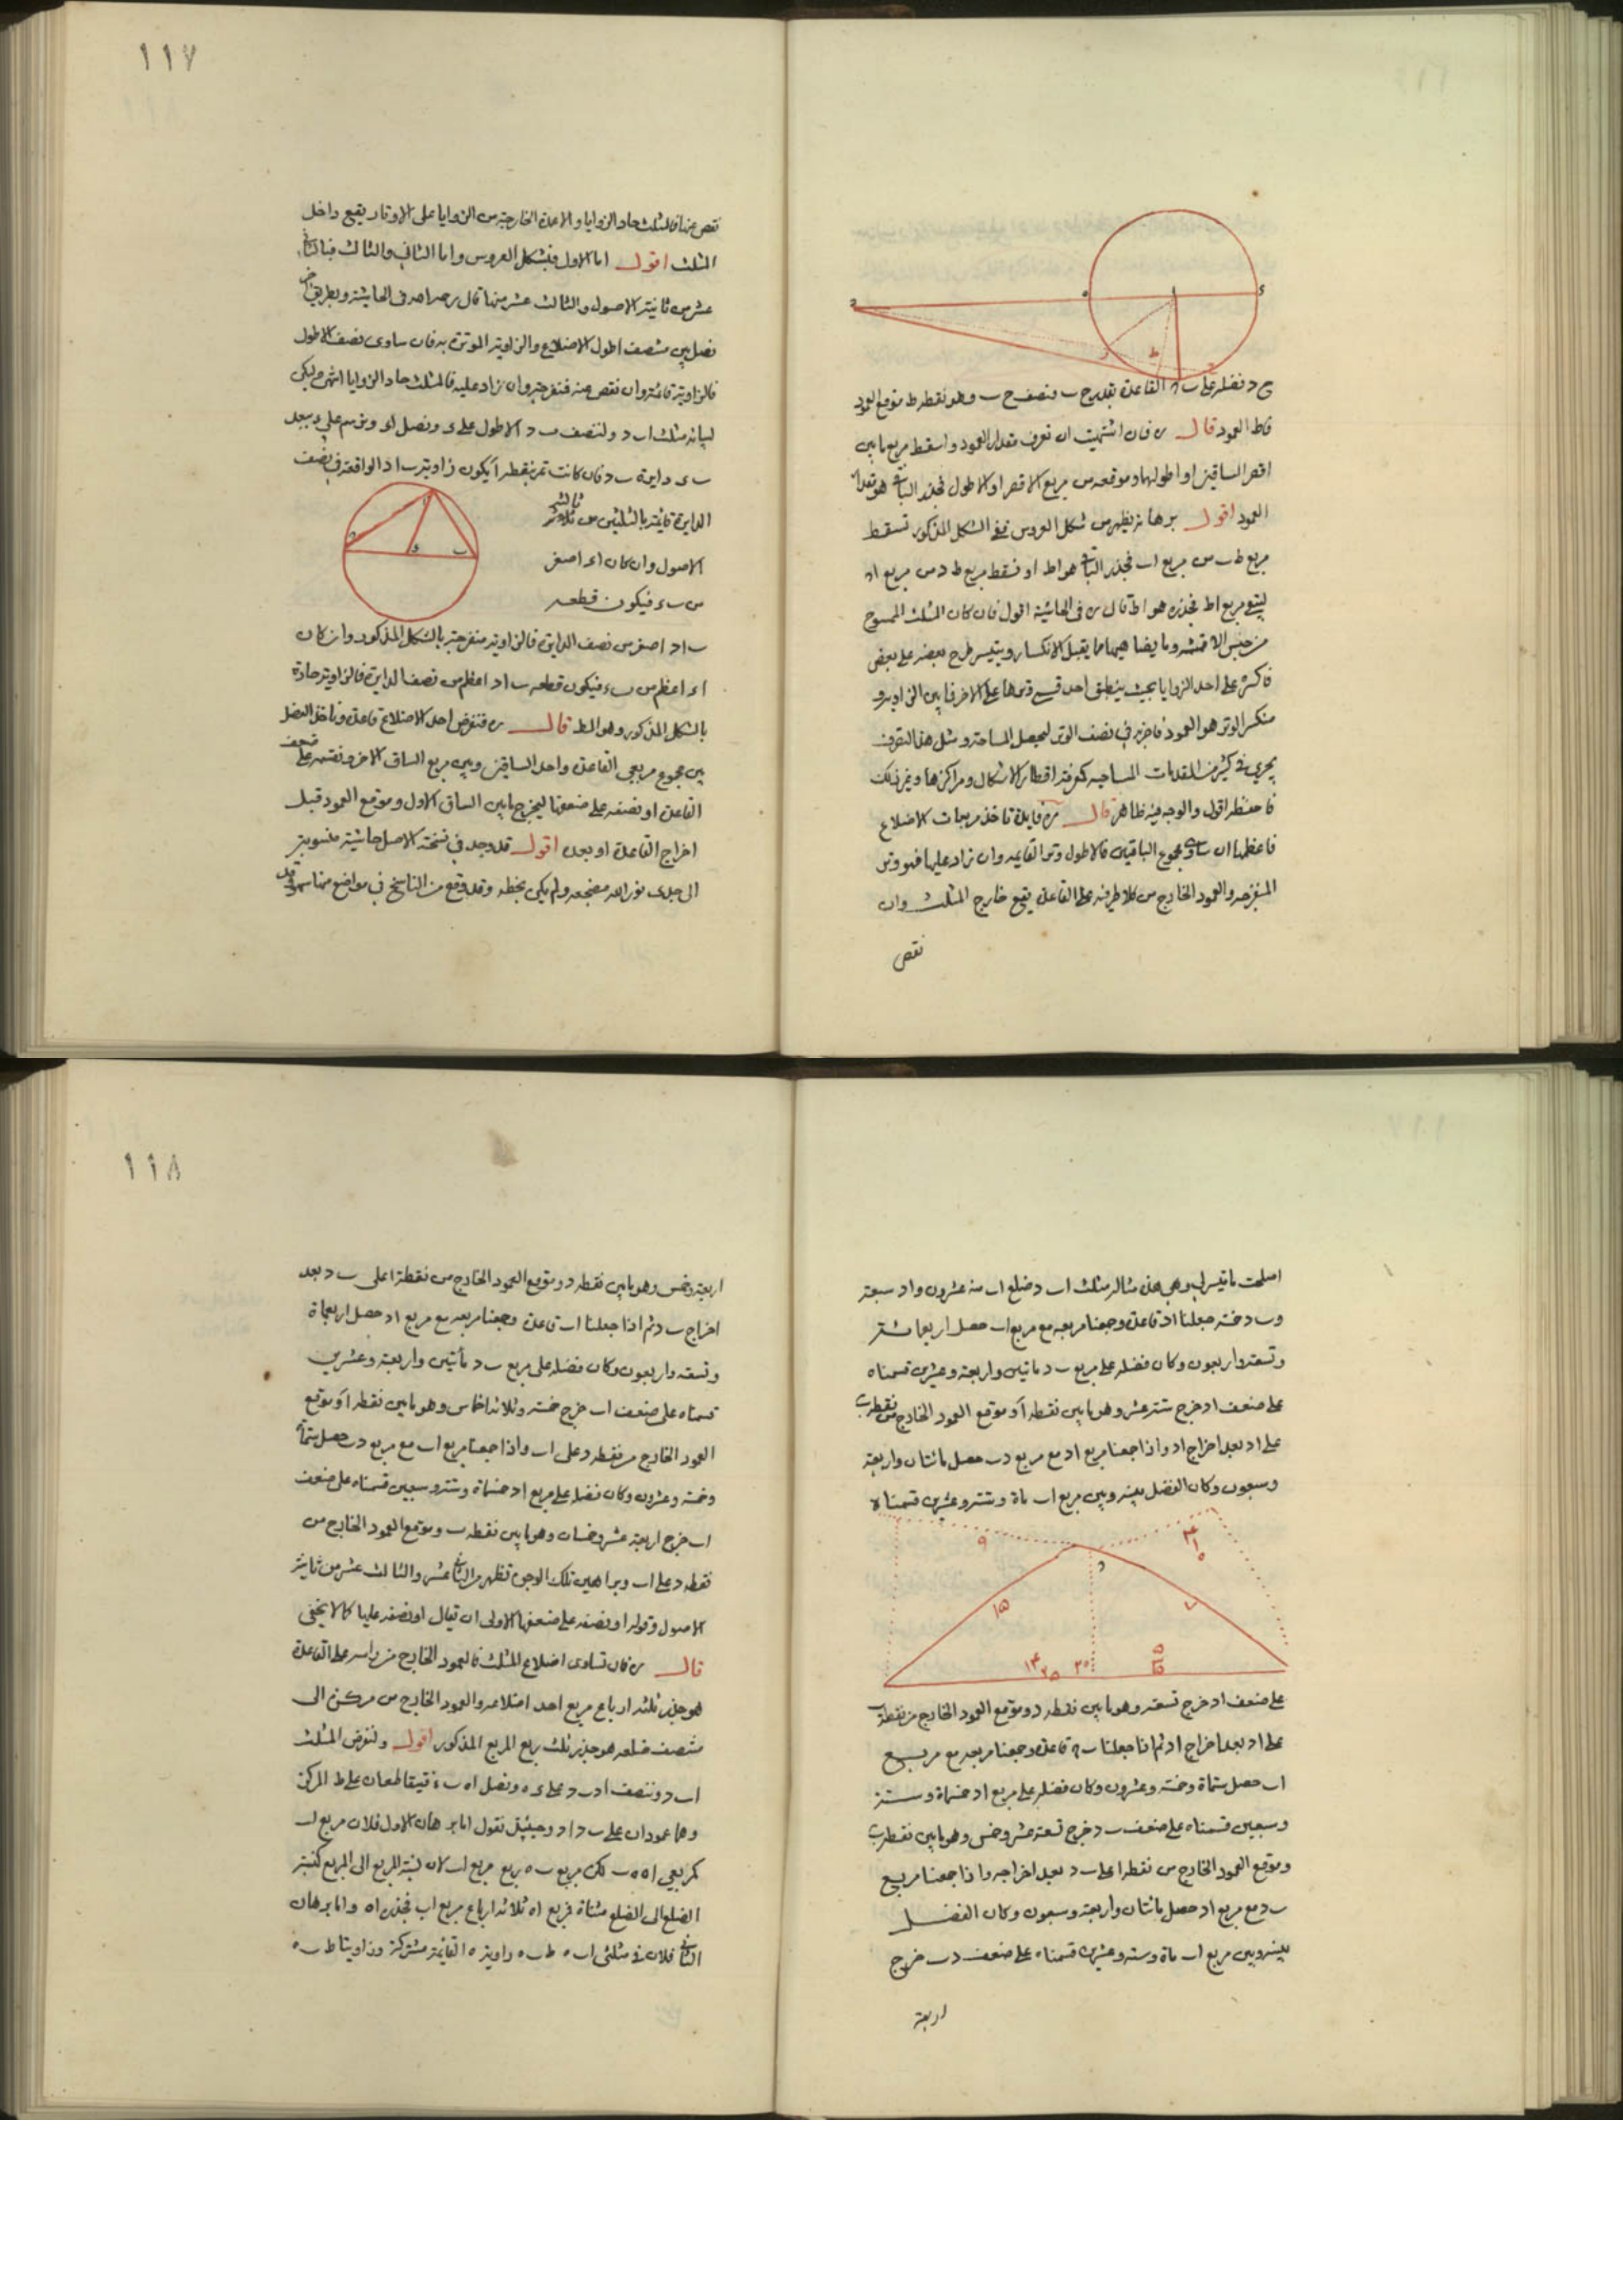 ح د فضله على ب ح القاعدة بقدر ح ب و نصف ح ب وهو نقطه ط موقع العمود
فاط العمود قال ره فان اشتهيت ان تعرف مقدار العمود و اسقط مربع ما بين
اقصر الساقين او اطولهما و موقعه من مربع الاقصر او الاطول فجذر الباقى هو مقدار
العمود اقول برهانه يظهر من شكل العروس ففى الشكل المذكور نسقط
مربع ط ب من مربع اب فجذر الباقى هو اط او نسقط مربع ط د من مربع اد
ليبقى مربع اط فجذره هو اط قال ره فى الحاشية اقول فان كان المثلث الممسوح
من جنس الاقمشه وما يضاهيها مما يقبل الانكسار ويتيسر طرح بعضه على بعض
فاكسره على احد الزوايا بحيث ينطبق احد قسمى وترها على الاخر فما بين الزاويه و
منكسر الوتر هو العمود فاضربه فى نصف الوتر ليحصل المساحة و مثل هذا التصرف
يجري فى كثير من المقدمات المساحيه كمعرفة اقطار الاشكال و مراكزها و غير ذلك
فاحفظه اقول والوجه فيه ظاهر قال ره فايدة تاخذ مربعات الاضلاع
فاعظمها ان ساوى مجموع الباقيين فالاطول وتر القايمه وان زاد عليها فهو وتر
المنفرجه والعمود الخارج من كلا طرفيه على القاعدة يقع خارج المثلث وان
نقص
١١٧
نقص عنها فالمثلث حاد الزوايا والاعمدة الخارجة من الزوايا على الاوتار يقع داخل
المثلث اقول اما الاول فبشكل العروس واما الثاني والثالث فبالثانى
عشر من ثانية الاصول والثالث عشر منها قال رحمه الله فى الحاشية وبطريق اخر
نصل بين منتصف اطول الاضلاع والزاوية الموترة به فان ساوى نصف الاطول
فالزاوية قائمة وان نقص عنه فمنفرجة وان زاد عليه فالمثلث حاد الزوايا انتهى وليكن
لبيانه مثلث اب د ولننصف ب د الاطول على ء ونصل اء ونرسم على ء ببعد
ب ء دايرة ب د فان كانت تمر بنقطة ا يكون زاوية ب اد الواقعة فى نصف
الدايرة قائمة بالثلثين من ثالثة
الاصول وان كان اء اصغر
من ب ء فيكون قطعه
ب اد اصغر من نصف الدايرة فالزاوية منفرجة بالشكل المذكور وان كان
اء اعظم من ب ء فيكون قطعه ب اد اعظم من نصف الدايرة فالزاوية حادة
بالشكل المذكور وهو المط قال ره فنفرض احد الاضلاع قاعدة وناخذ الفضل
بين مجموع مربعى القاعدة واحد الساقين وبين مربع الساق الاخر ونقسمه على ضعف
القاعدة او نصفه على ضعفها ليخرج ما بين الساق الاول وموقع العمود قبل
اخراج القاعدة او بعده اقول قد وجد فى نسخة الاصل حاشية منسوبة
الى جدى نور الله مضجعه ولم يكن بخطه وقد وقع من الناسخ فى مواضع منها سهو وقد
اصلحت ما تيسر لى وهى هذه مثاله مثلث اب د ضلع اب منه عشرون واد سبعة
وب د خمسة جعلنا اد قاعدة وجمعنا مربعه مع مربع اب حصل اربعمائة
وتسعة واربعون وكان فضله على مربع ب د مأتين واربعة وعشرين قسمناه
على ضعف اد خرج ستة عشر وهو ما بين نقطه ا وموقع العمود الخارج من نقطه ب
على اد بعد اخراج اد واذا جمعنا مربع اد مع مربع د ب حصل مائتان واربعة
وسبعون وكان الفضل بينه وبين مربع اب ماة وستة وعشرين قسمناه
٩
د
١٥
٧
على ضعف اد خرج تسعه وهو ما بين نقطه د وموقع العمود الخارج من نقطه ب
على اد بعد اخراج اد ثم اذا جعلنا ب د قاعدة وجمعنا مربعه مع مربع
اب حصل ستماة وخمسة وعشرون وكان فضله على مربع اد خمسماة وستة
وسبعين قسمناه على ضعف ب د خرج تسعة عشر وخمس وهو ما بين نقطه ب
وموقع العمود الخارج من نقطه ا على ب د بعد اخراجه واذا جمعنا مربع
ب د مع مربع اد حصل مائتان واربعة وسبعون وكان الفضل
بينه وبين مربع اب ماة وسته وعشرين قسمناه على ضعف د ب خرج
اربعة
١١٨
اربعة وخمس وهو ما بين نقطه د وموقع العمود الخارج من نقطة ا على ب د بعد
اخراج ب د ثم اذا جعلنا اب قاعدة وجمعنا مربعه مع مربع اد حصل اربعماة
وتسعه واربعون وكان فضله على مربع ب د مأتين واربعة وعشرين
قسمناه على ضعف اب خرج خمسة وثلاثه اخماس وهو ما بين نقطه ا وموقع
العمود الخارج من نقطه د على اب واذا جمعنا مربع اب مع مربع د ب حصل ستماة
وخمسة وعشرون وكان فضله على مربع اد خمسماة وستة وسبعين قسمناه على ضعف
اب خرج اربعة عشر وخمسان وهو ما بين نقطه ب وموقع العمود الخارج من
نقطه د على اب وبراهين تلك الوجوه تظهر من الثانى عشر والثالث عشر من ثانية
الاصول وقوله او نصفه على ضعفها الاولى ان يقال او نصفه عليها كما لا يخفى
قال ره فان تساوى اضلاع المثلث فالعمود الخارج من راسه على القاعدة
هو جذر ثلثه ارباع مربع احد اضلاعه والعمود الخارج من مركزه الى
منتصف ضلعه هو جذر ثلث ربع المربع المذكور اقول ولنفرض المثلث
اب د وننصف اد ب د على ء ه ونصل اه ب ء فيتقاطعان على ط المركز
وهما عمودان على ب د اد وحينئذ نقول اما برهان الاول فلان مربع اب
كمربعي اه ه ب لكن مربع ب ه ربع مربع اب لان نسبة المربع الى المربع كنسبة
الضلع الى الضلع مثناة فمربع اه ثلاثه ارباع مربع اب فجذره اه واما برهان
الثانى فلان فى مثلثى اب ه ط ب ه زاوية ه القائمة مشتركة وزاويتا ط ب ه